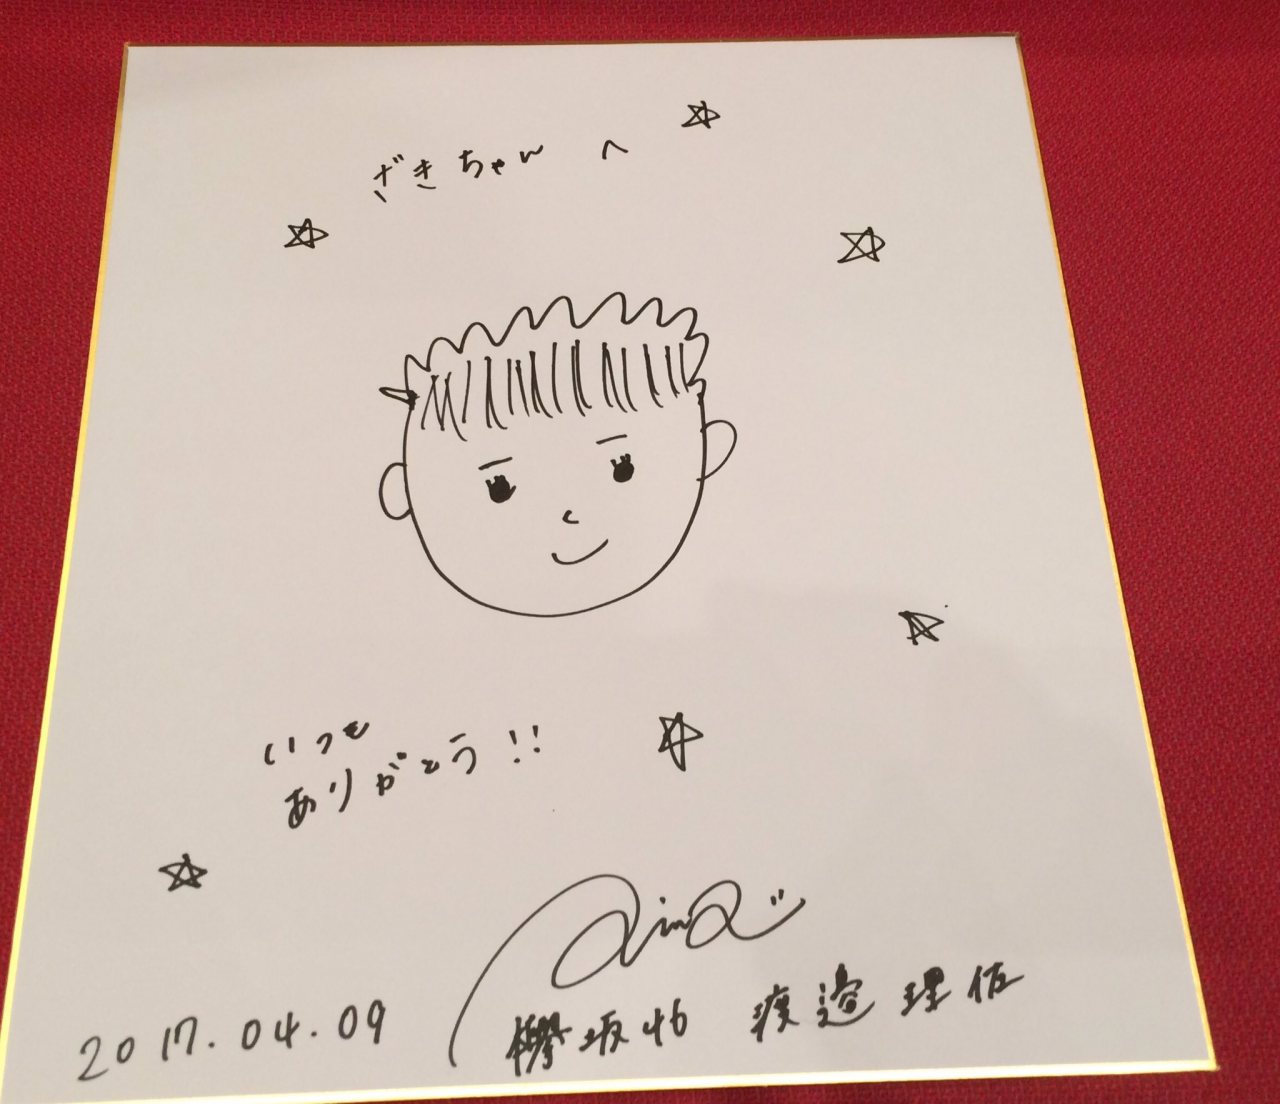 ざきちゃんへ
いつも
ありがとう!!
2017.04.09
欅坂46 渡邉理佐